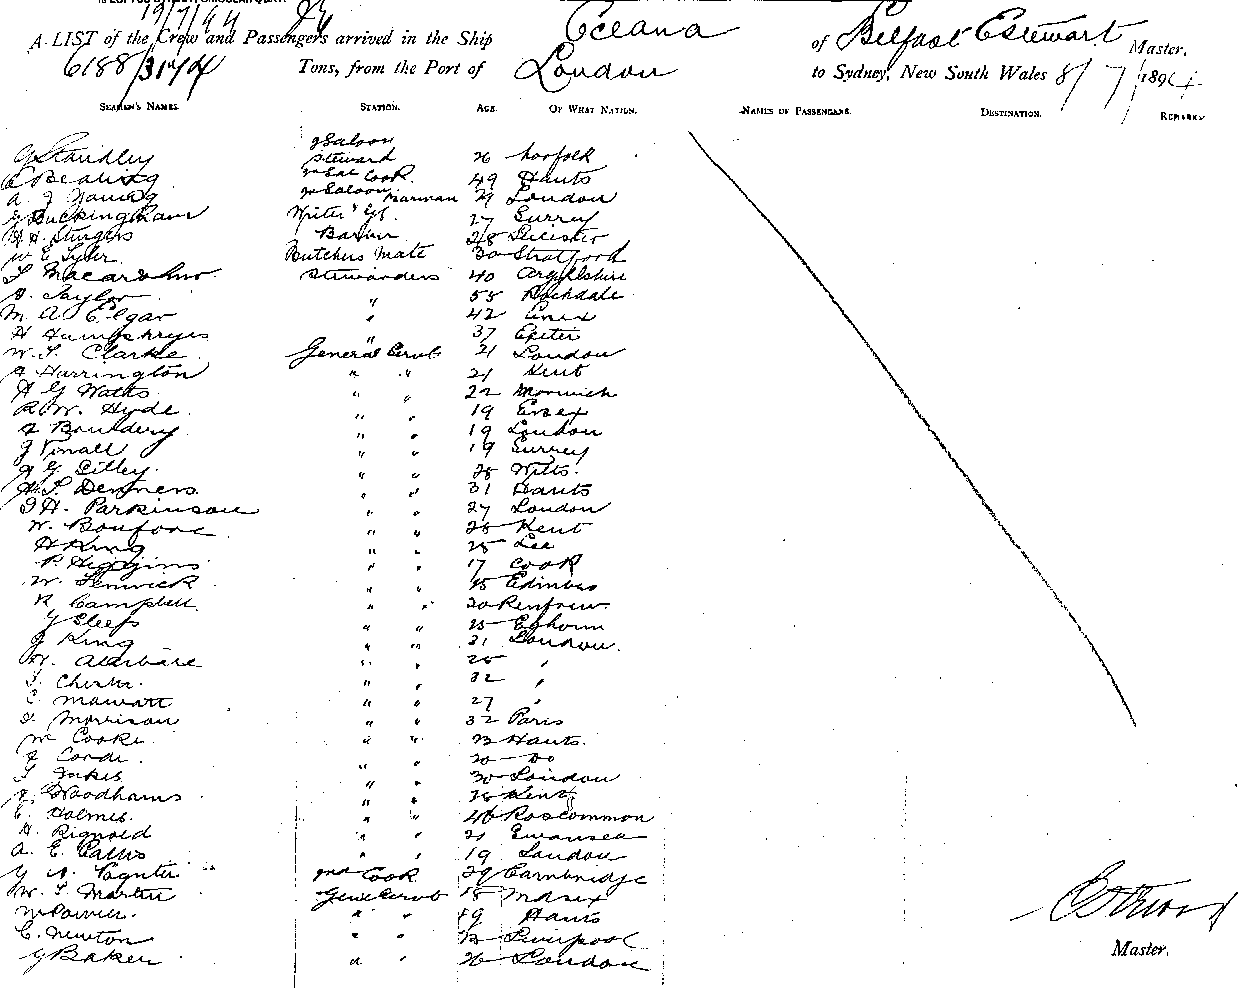 19/7/94
A LIST of the Crew and Passengers arrived in the Ship Oceana of Belfast E Stewart Master,
6188 Tons, from the Port of London to Sydney, New South Wales 8/7/1894
SEAMEN'S NAMES. STATION. AGE. OF WHAT NATION. NAMES OF PASSENGERS. DESTINATION. REMARKS
G Standley Saloon Steward 26 Norfolk
Bealing Cook 49 Hants
A. J Young Saloon 29 London
Buckingham Writer 27 Surrey
H. Sturges Barber 28 Leicester
W E Tyler Butchers Mate 30 Stratford
Stewardess 40 Argyllshire
Taylor " 55 Rochdale
M. A Elgar " 42 Essex
H Humphreys " 37 Exeter
W. S. Clarke General Servt 21 London
Harrington " " 21 Kent
A G Watts " " 22 Norwich
R. W. Hyde " " 19 Essex
Boundery " " 19 London
J Vinall " " 19 Surrey
G. Lilley " " 28 Wilts.
Denness " " 31 Hants
H. Parkinson " " 27 London
W. " " 28 Kent
H King " " 25 Lee
P. Higgins " " 17 Cook
W. Fenwick " " Edinbro
R Campbell " " 20 Renfrew
G Sleefs " " 25 Egham
J King " " 21 London
" " 25 "
Chester " " 32 "
C. Mawatt " " 27 "
Morrison " " 32 Paris
W Cooke " " 23 Hants.
" " 20 Do
Jukes " " 30 London
Woodhams " " Kent
C. Holmes " " 46 Roscommon
H. Rignold " " 21 Swansea
A. E. " " 19 London
G. A. Poynter 2nd Cook 29 Cambridge
W. S. Martin Genl Servt 18 Mdsex
" " 19 Hants
C. Newton " " 23 Liverpool
G Baker " " 26 London
E Stewart
Master.